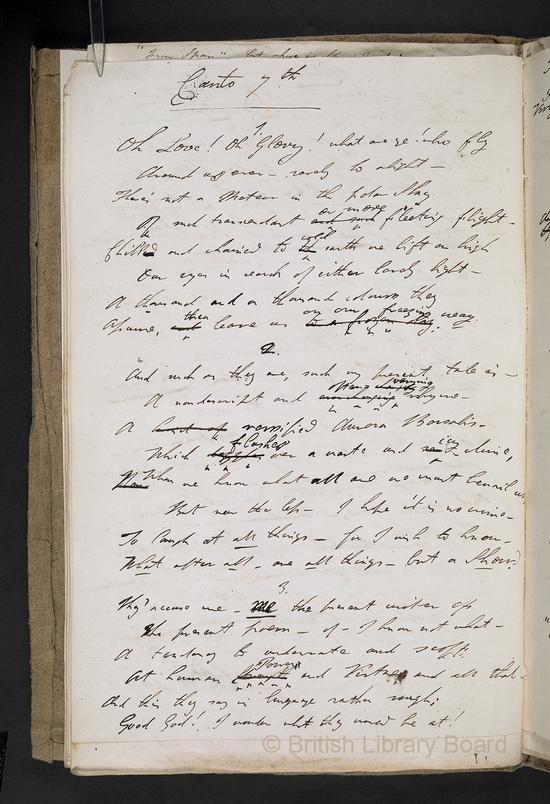 Canto 7th
1.
Oh Love! Oh Glory! what are ye! who fly
Around us ever – rarely to alight –
There's not a Meteor in the polar Sky
Of such transcendant and such or more fleeting flight –
Chilled and chained to cold earth we lift on high
Our eyes in search of either lovely light –
A thousand and a thousand colours they
Assume, then leave us on our freezing way.
2.
And such as they are, such my present tale is –
A nondescript and ever varying rhyme –
A versified Aurora Borealis –
Which flashes over a waste and icy clime,
When we know what all are we must bewail us,
But ne'er the less – I hope it is no crime –
To laugh at all things – for I wish to know –
What after all, are all things – but a Show?
3.
They accuse me – me the present writer of
The present poem – of – I know not what –
A tendency to underrate and scoff
At human Power and Virtue and all that –
And this they say in language rather rough;
Good God! I wonder what they would be at!
© British Library Board